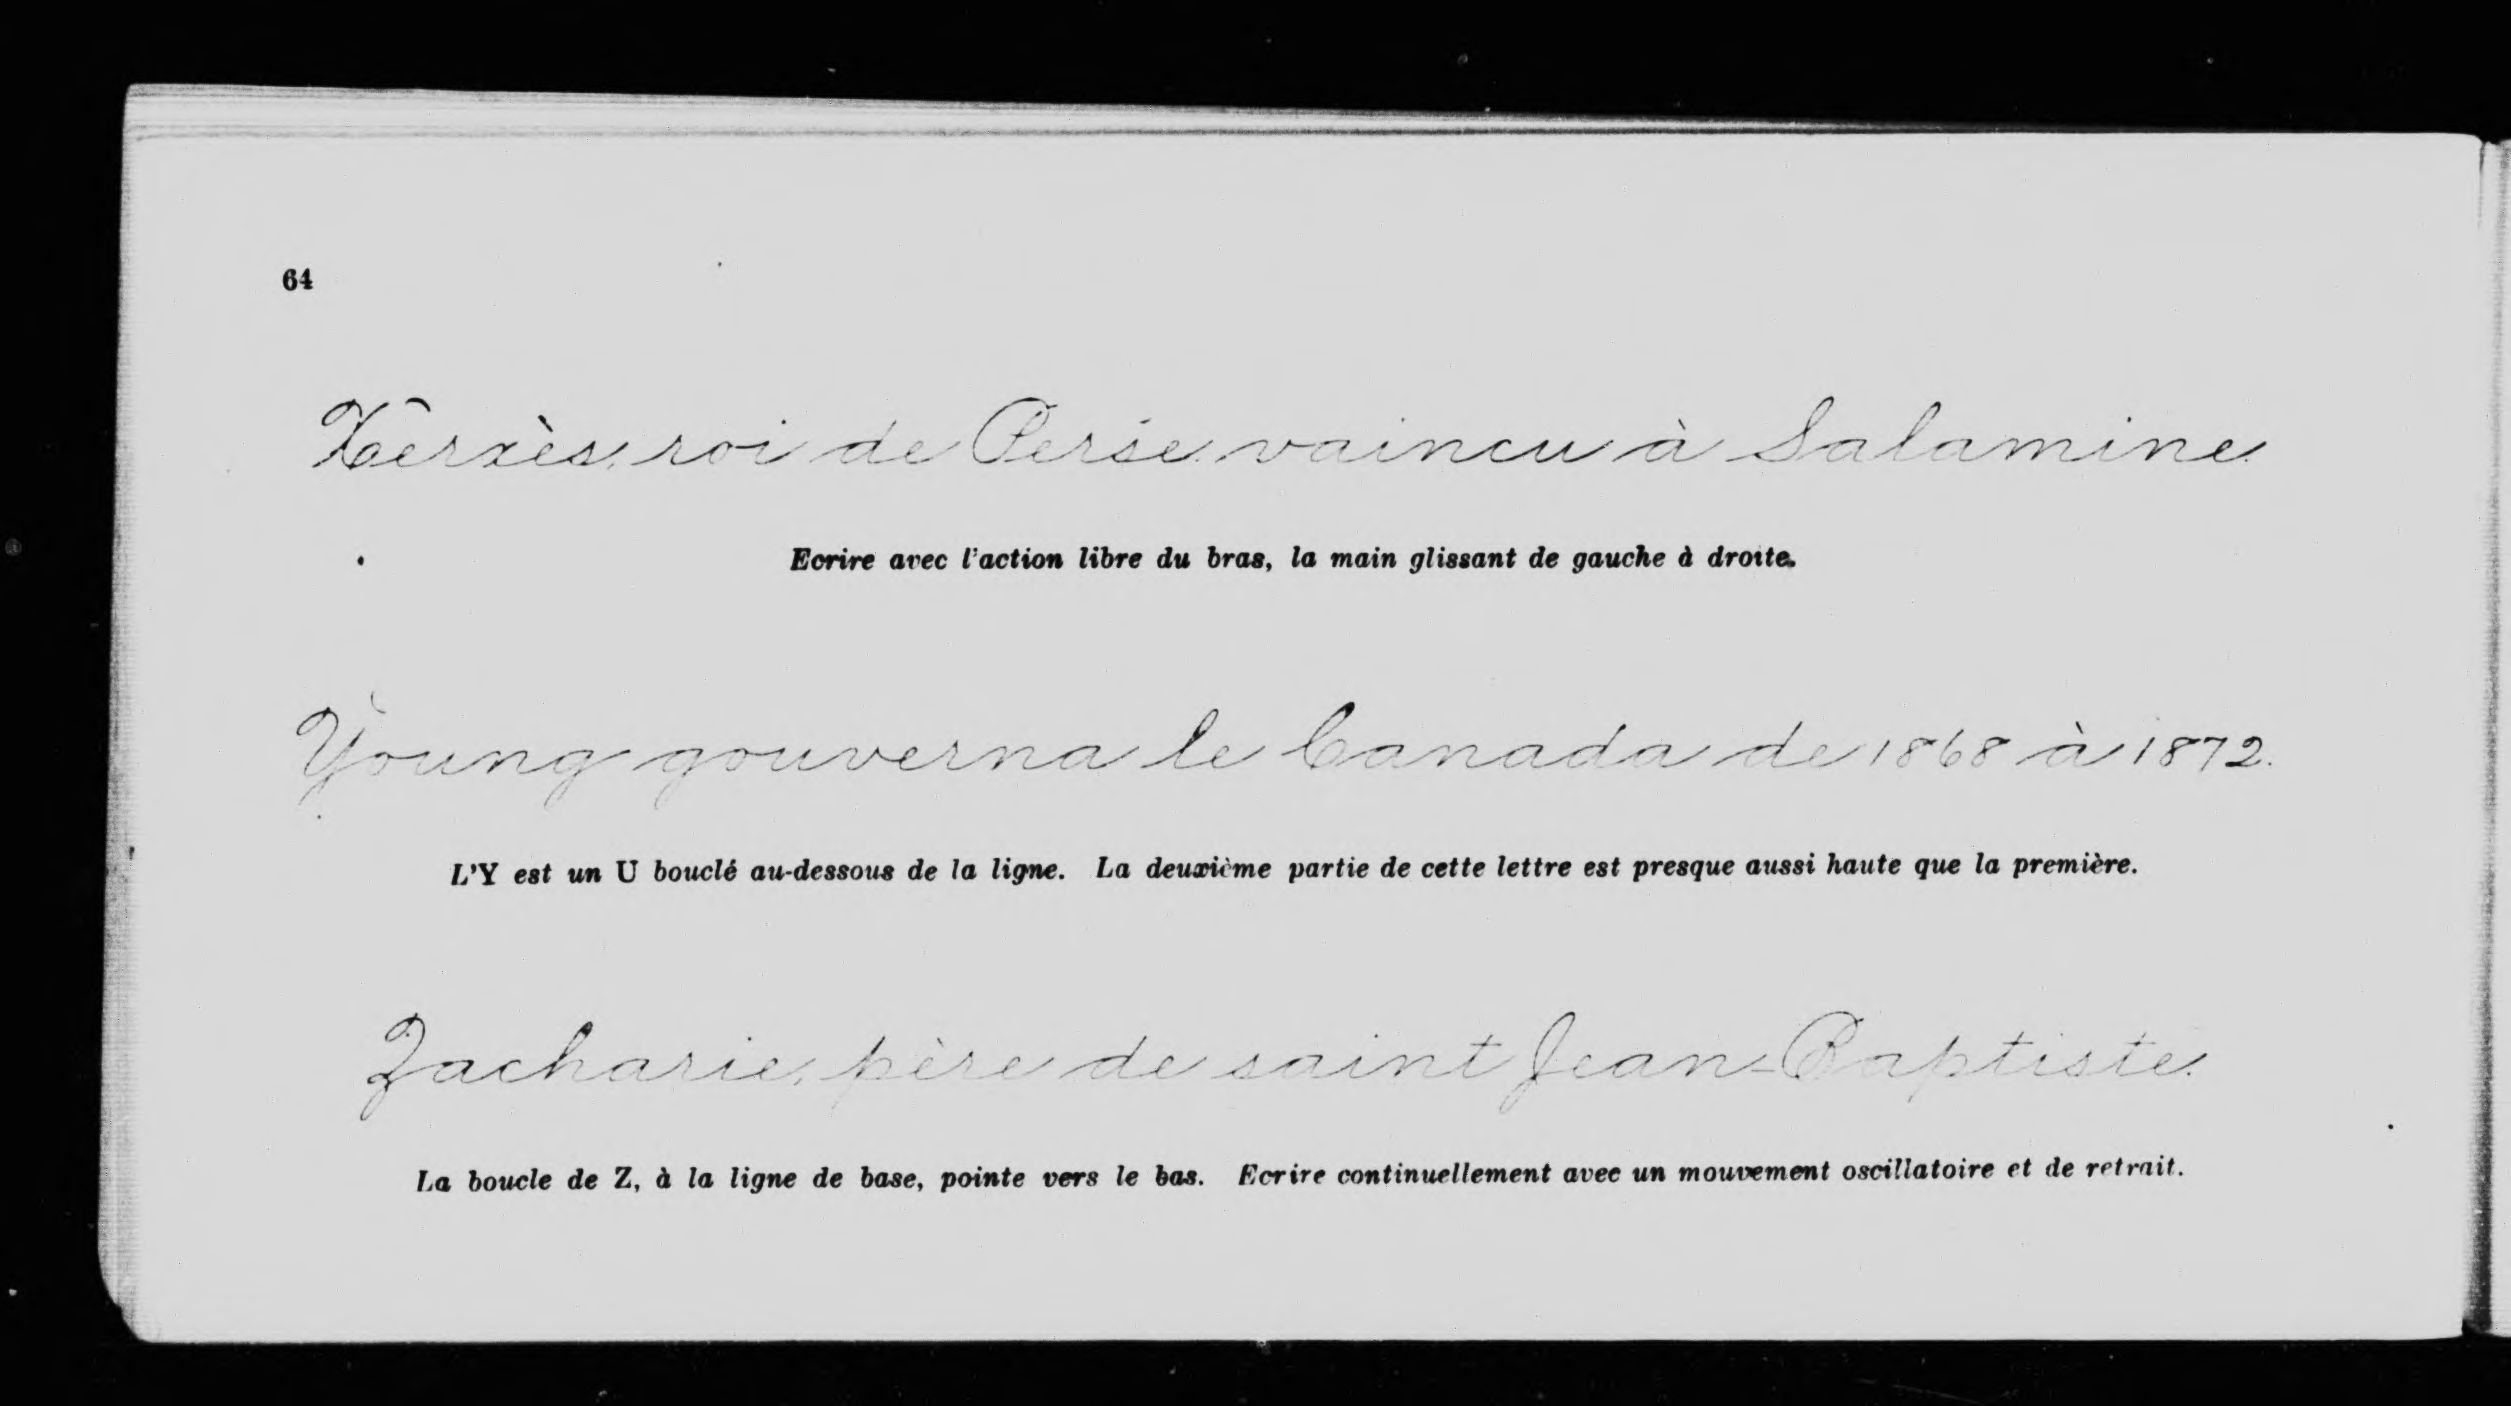 64
Xerxès, roi de Perse vaincu à Salamine.
Ecrire avec l'action libre du bras, la main glissant de gauche à droite.
Young gouverna le Canada de 1868 à 1872.
L'Y est un U bouclé au-dessous de la ligne. La deuxième partie de cette lettre est presque aussi haute que la première.
Zacharie, père de saint Jean-Baptiste.
La boucle de Z, à la ligne de base, pointe vers le bas. Ecrire continuellement avec un mouvement oscillatoire et de retrait.